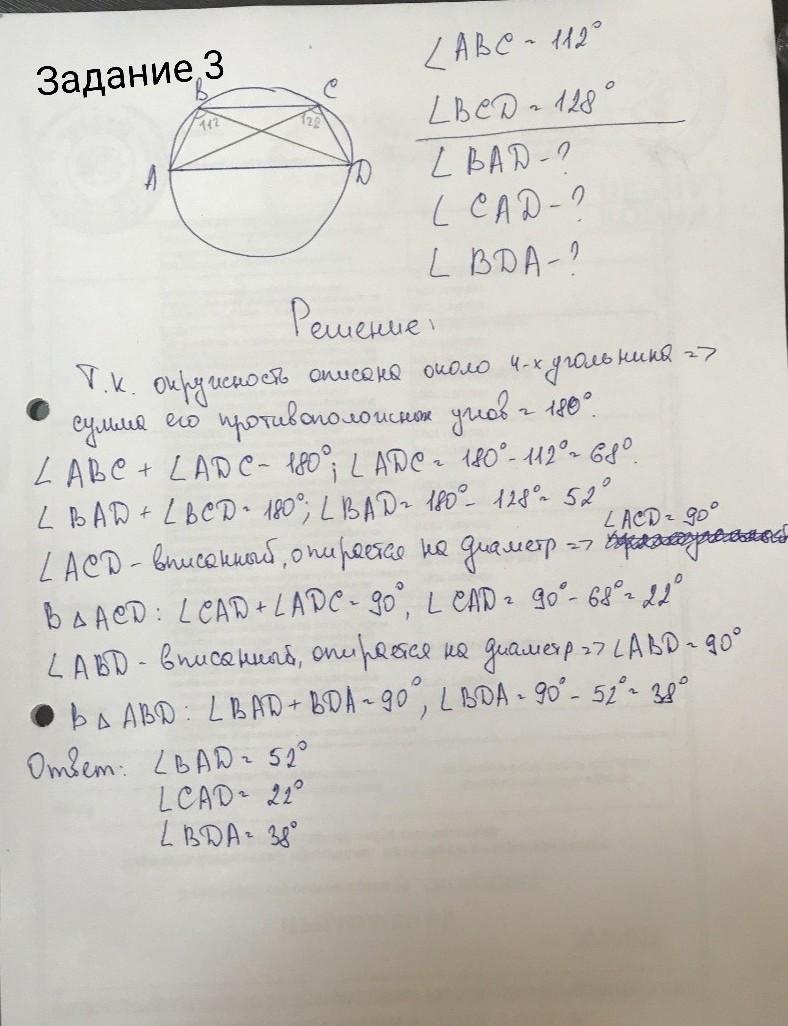 Задание 3
B C
112 128
A D
∠ABC = 112°
∠BCD = 128°
∠BAD - ?
∠CAD - ?
∠BDA - ?
Решение:
Т.к. окружность описана около 4-х угольника =>
сумма его противоположных углов = 180°.
∠ABC + ∠ADC = 180°; ∠ADC = 180° - 112° = 68°.
∠BAD + ∠BCD = 180°; ∠BAD = 180° - 128° = 52°
∠ACD - вписанный, опирается на диаметр => ∠ACD = 90°
В △ACD: ∠CAD + ∠ADC = 90°, ∠CAD = 90° - 68° = 22°
∠ABD - вписанный, опирается на диаметр => ∠ABD = 90°
В △ABD: ∠BAD + BDA = 90°, ∠BDA = 90° - 52° = 38°
Ответ: ∠BAD = 52°
∠CAD = 22°
∠BDA = 38°